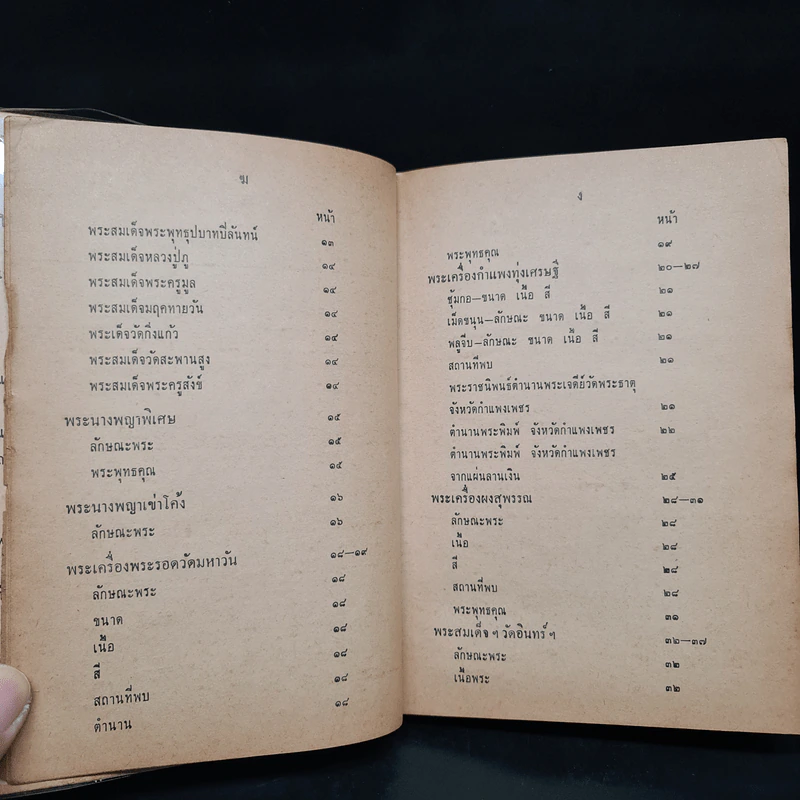 ฆ
หน้า
พระสมเด็จพระพุทธุปบาทปิลันทน์ ๑๓
พระสมเด็จหลวงปู่ภู ๑๔
พระสมเด็จพระครูมูล ๑๔
พระสมเด็จมฤคทายวัน ๑๔
พระเด็จวัดกิ่งแก้ว ๑๔
พระสมเด็จวัดสะพานสูง ๑๔
พระสมเด็จพระครูสังข์ ๑๔
พระนางพญาพิเศษ ๑๕
ลักษณะพระ ๑๕
พระพุทธคุณ ๑๕
พระนางพญาเข่าโค้ง ๑๖
ลักษณะพระ ๑๖
พระเครื่องพระรอดวัดมหาวัน ๑๘—๑๙
ลักษณะพระ ๑๘
ขนาด ๑๘
เนื้อ ๑๘
สี ๑๘
สถานที่พบ ๑๘
ตำนาน
ง
หน้า
พระพุทธคุณ ๑๙
พระเครื่องกำแพงทุ่งเศรษฐี ๒๐—๒๗
ซุ้มกอ—ขนาด เนื้อ สี ๒๑
เม็ดขนุน—ลักษณะ ขนาด เนื้อ สี ๒๑
พลูจีบ—ลักษณะ ขนาด เนื้อ สี ๒๑
สถานที่พบ ๒๑
พระราชนิพนธ์ตำนานพระเจดีย์วัดพระธาตุ
จังหวัดกำแพงเพชร ๒๑
ตำนานพระพิมพ์ จังหวัดกำแพงเพชร ๒๒
ตำนานพระพิมพ์ จังหวัดกำแพงเพชร
จากแผ่นลานเงิน ๒๕
พระเครื่องผงสุพรรณ ๒๘—๓๑
ลักษณะพระ ๒๘
เนื้อ ๒๘
สี ๒๘
สถานที่พบ ๒๘
พระพุทธคุณ ๓๑
พระสมเด็จ ฯ วัดอินทร์ ฯ ๓๒—๓๗
ลักษณะพระ ๓๒
เนื้อพระ ๓๒